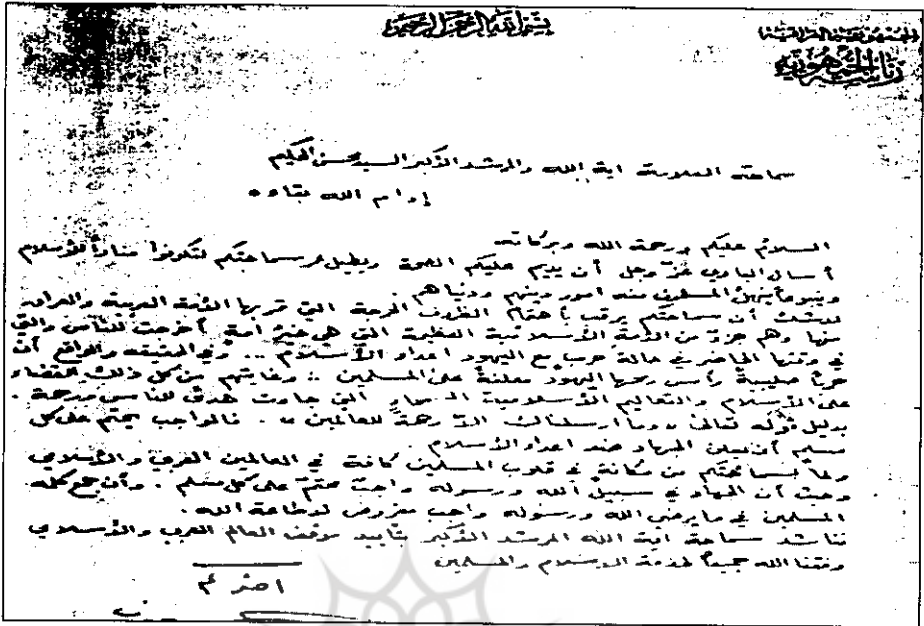 بسم الله الرحمن الرحيم
الجمهورية العراقية
رئاسة الجمهورية
سماحة العلامة اية الله والمرشد الأكبر السيد محسن الحكيم
إدام الله بقاءه
السلام عليكم ورحمة الله وبركاته
أسأل الباري عز وجل أن يديم عليكم الصحة ويطيل عمر سماحتكم لتكونوا مناراً للأسلام
وينبوعاً ينهل المسلمين منه امور دينهم ودنياهم .
لاشك أن سماحتكم يرقب بأهتمام الظروف الحرجة التي تمر بها الأمة العربية والعراق
منها وهم جزء من الأمة الأسلامية العظيمة التي هي خير امة أخرجت للناس والتي
في وقتها الحاضر في حالة حرب مع اليهود اعداء الأسلام .. وفي الحقيقة والواقع أن
حرباً صليبية رأس رمحها اليهود معلنة على المسلمين .. وغايتهم من كل ذلك القضاء
على الأسلام والتعاليم الأسلامية التي جاءت هدى للناس ورحمة .
بدليل قوله تعالى « وما ارسلناك الا رحمة للعالمين » . فالواجب يحتم على كل
مسلم أن يعلن الجهاد ضد اعداء الأسلام .
ولما لسماحتكم من مكانة في قلوب المسلمين كافة في العالمين العربي والأسلامي
وحيث أن الجهاد في سبيل الله ورسوله واجب محتم على كل مسلم . وأن جمع كلمة
المسلمين في ما يرضي الله ورسوله واجب مفروض لاطاعة الله .
نناشد سماحة اية الله المرشد الأكبر بتأييد موقف العالم العربي والأسلامي
وفقنا الله جميعاً لخدمة الاسلام والمسلمين